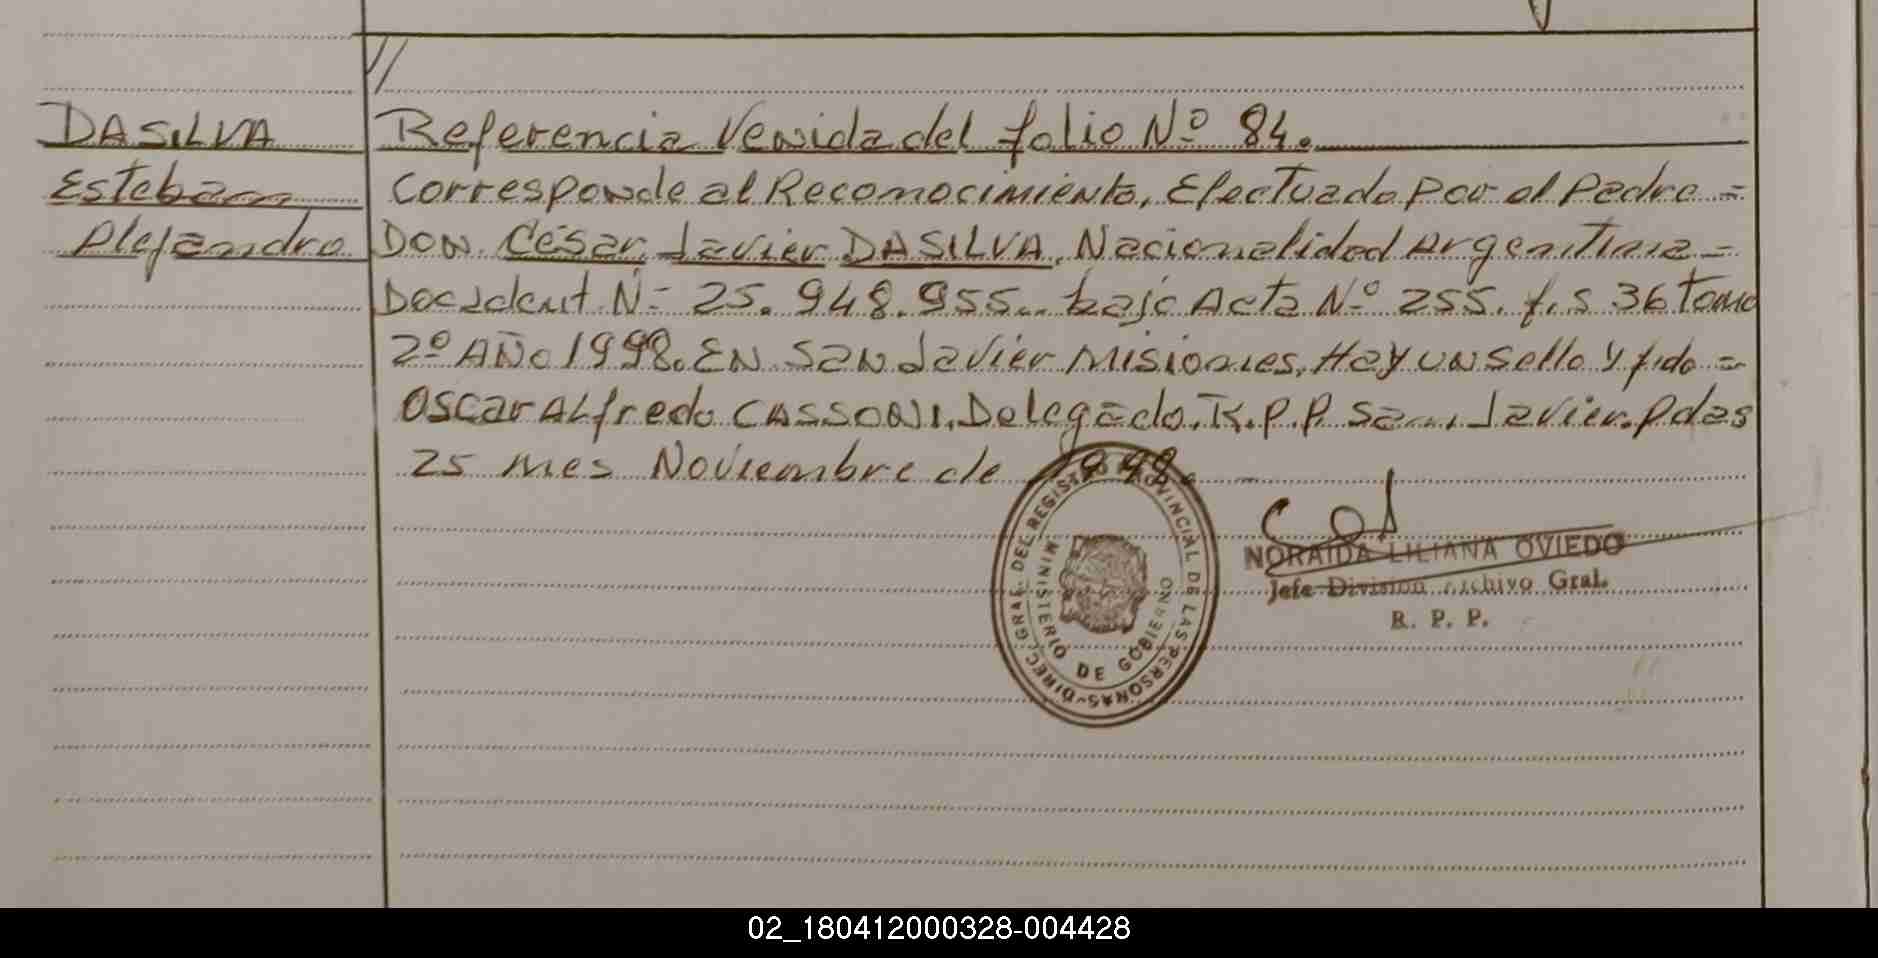 //
DASILVA
Esteban
Alejandro
Referencia Venida del folio Nº 84.
Corresponde al Reconocimiento, Efectuado por el Padre =
DON César Javier DASILVA, Nacionalidad Argentina =
Doc. Ident. Nº 25.948.955.. bajo Acta Nº 255. f.s 36 Tomo
2º AÑO 1998. EN SAN Javier Misiones, Hay un sello y fido =
Oscar ALfredo CASSONI. Delegado. R.P.P. San Javier. Pdas
25 mes Noviembre de 1998. -
DIREC. GRAL. DEL REGISTRO PROVINCIAL DE LAS PERSONAS
MINISTERIO DE GOBIERNO
NORAIDA LILIANA OVIEDO
Jefe División Archivo Gral.
R. P. P.
02_180412000328-004428